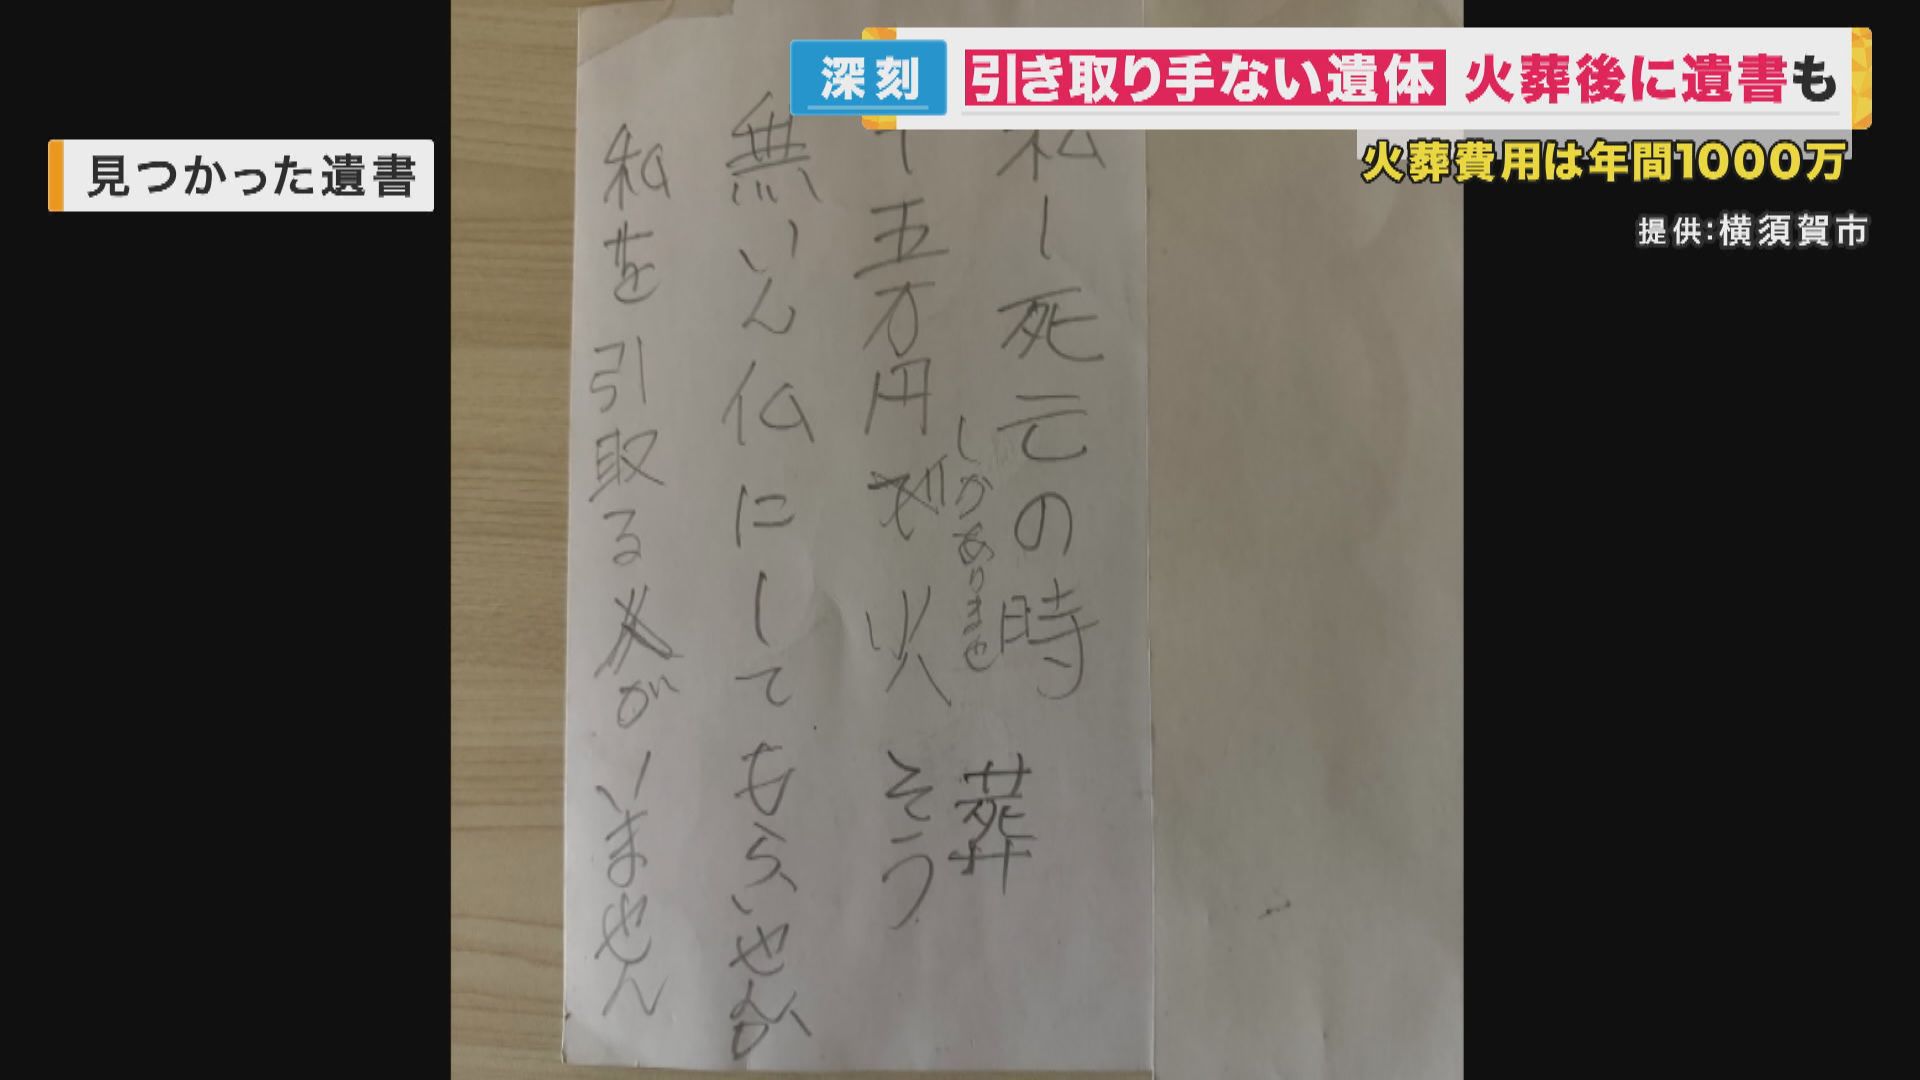 深刻
引き取り手ない遺体 火葬後に遺書も
火葬費用は年間1000万
提供:横須賀市
見つかった遺書
私し死亡の時
しかありませ
十五万円 火そう
葬
無いん仏にしてもらいせんか
私を引取る人がいません